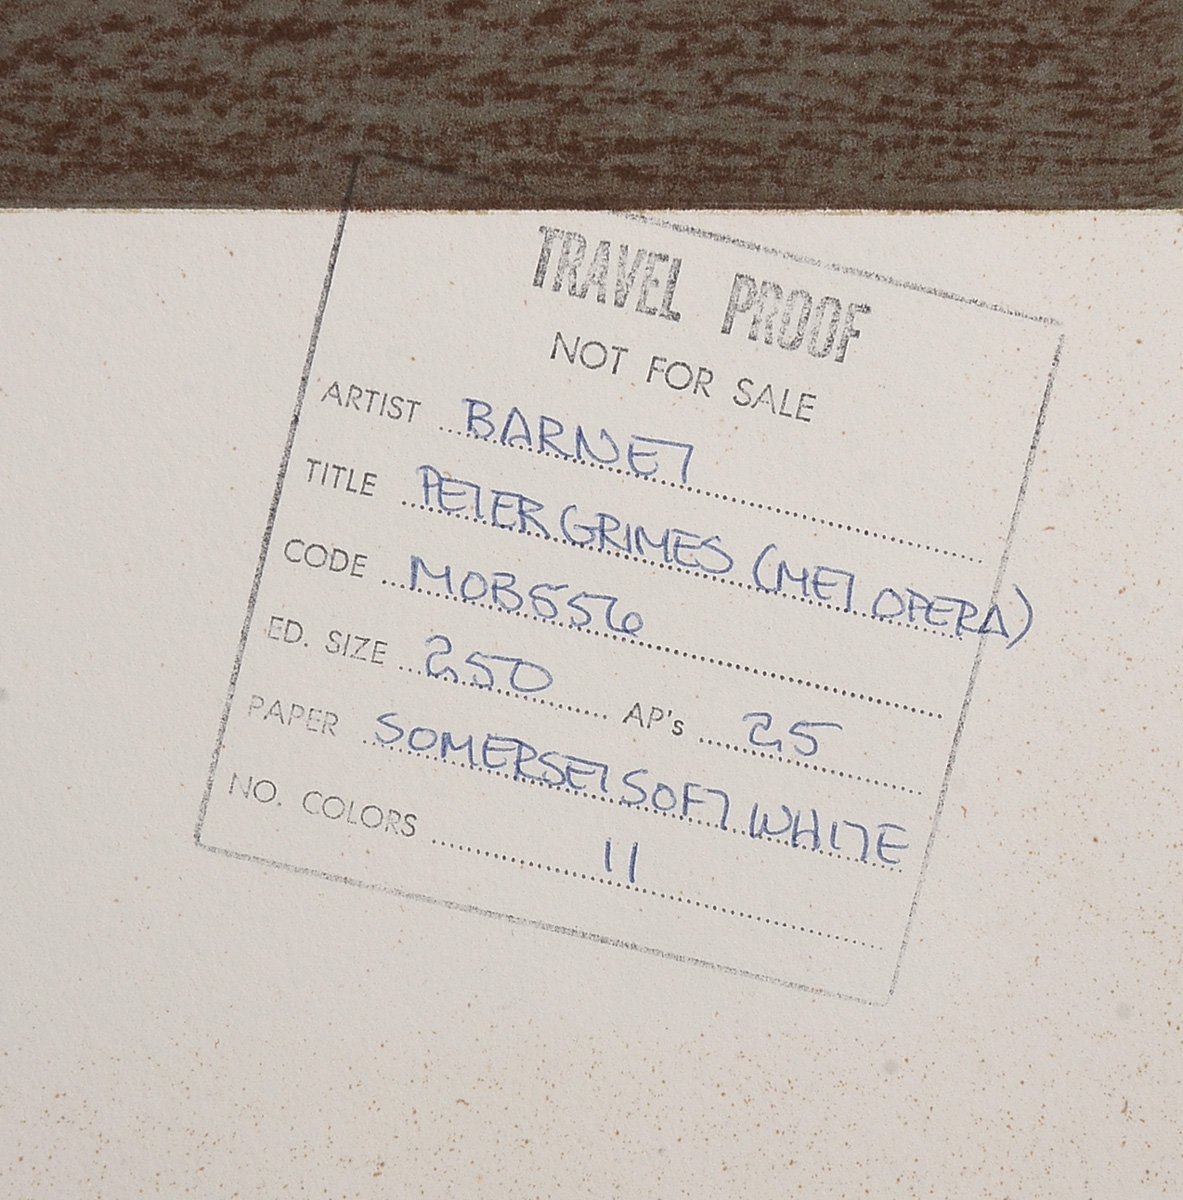 TRAVEL PROOF
NOT FOR SALE
ARTIST BARNET
TITLE PETER GRIMES (MET OPERA)
CODE MOB556
ED. SIZE 250 AP's 25
PAPER SOMERSET SOFT WHITE
NO. COLORS 11